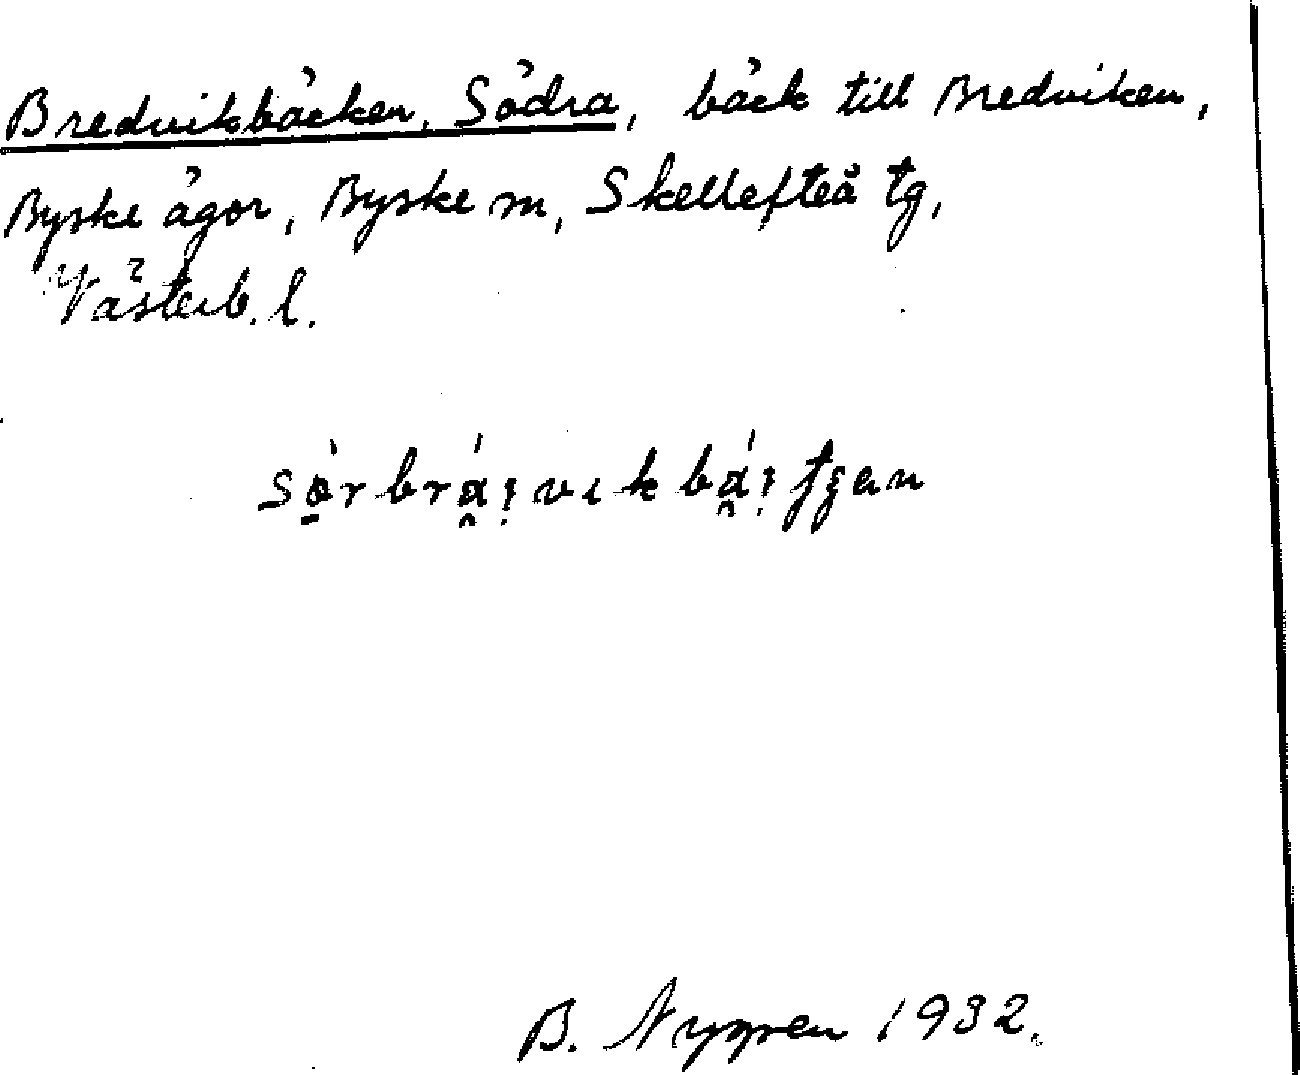 Bredviksbäcken, Södra, bäck till Bredviken,
Byske ägor, Byske sn, Skellefteå tg,
Västerb. l.
B. Nygren 1932.